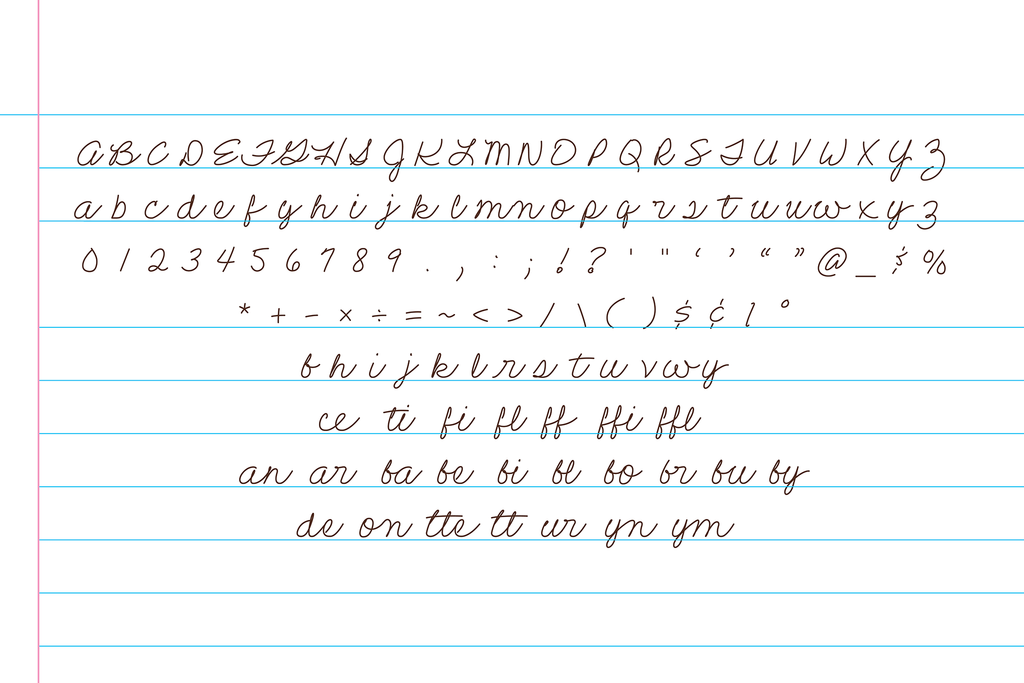 A B C D E F G H I J K L M N O P Q R S T U V W X Y Z
a b c d e f g h i j k l m n o p q r s t u u w x y z
0 1 2 3 4 5 6 7 8 9 . , : ; ! ? ' " ‘ ’ “ ” @ _ & %
* + - × ÷ = ~ < > / \ ( ) $ ¢ 1 °
b h i j k l r s t u v w y
ce ti fi fl ff ffi ffl
an ar ba be bi bl bo br bu by
de on tte tt ur yn ym